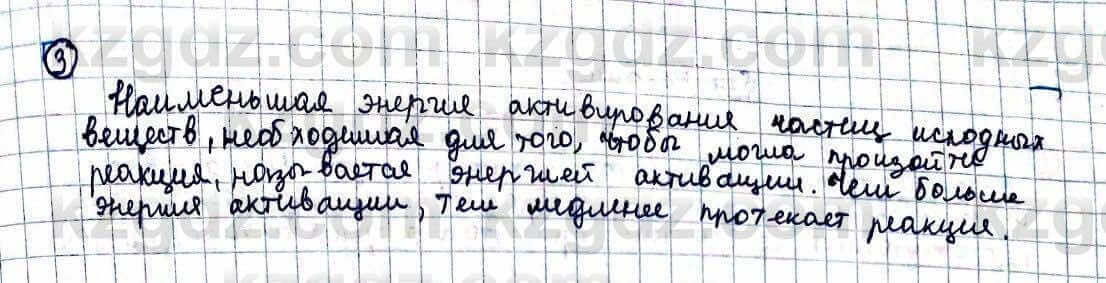 kzgdz.com kzgdz.com kzgdz.com
3
Наименьшая энергия активирования частиц исходных
веществ, необходимая для того, чтобы могла произойти
реакция, называется энергией активации. Чем больше
энергия активации, тем медленее протекает реакция.